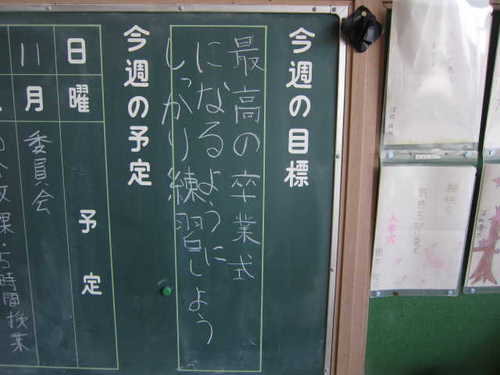 今週の目標
最高の卒業式
になるように
しっかり練習しよう
今週の予定
日
曜
予定
11
月
委員会
放課・5時間授業